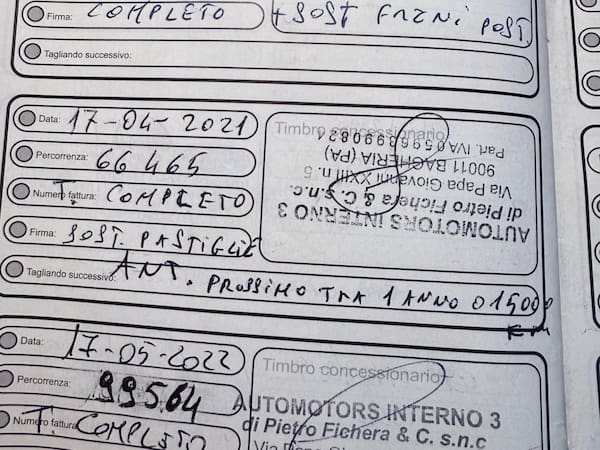 Firma: COMPLETO
+ SOST FRENI POST.
Tagliando successivo:
Data: 17-04-2021
Percorrenza: 66465
Numero fattura: T. COMPLETO
Firma: SOST. PASTIGLIE
Tagliando successivo: ANT. PROSSIMO TRA 1 ANNO O 15000
KM
Timbro concessionario
AUTOMOTORS INTERNO 3
di Pietro Fichera & C. s.n.c.
Via Papa Giovanni XXIII n. 5
90011 BAGHERIA (PA)
Part. IVA
Data: 17-05-2022
Percorrenza: 99564
Numero fattura: T. COMPLETO
Timbro concessionario
AUTOMOTORS INTERNO 3
di Pietro Fichera & C. s.n.c